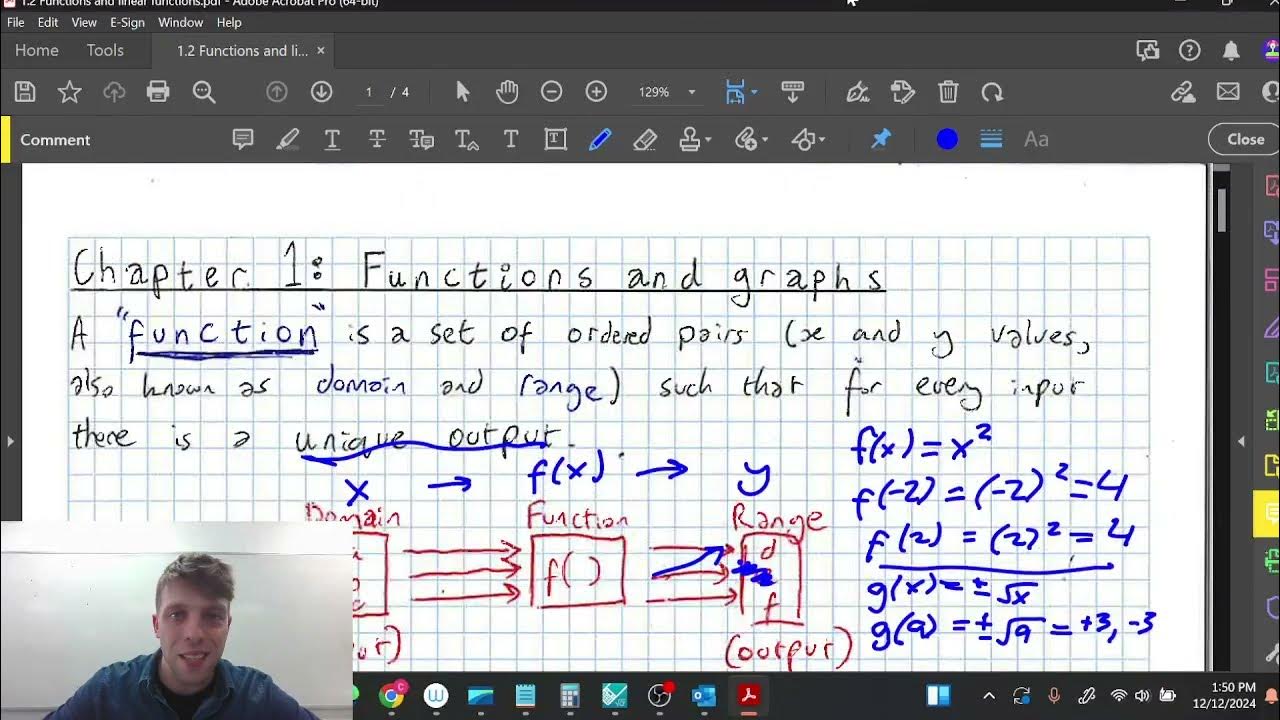 1.2 Functions and linear functions.pdf - Adobe Acrobat Pro (64-bit)
File Edit View E-Sign Window Help
Home Tools 1.2 Functions and li... ×
1 / 4 129%
Comment T T T T T Aa Close
Chapter 1: Functions and graphs
A "function" is a set of ordered pairs (x and y values,
also known as domain and range) such that for every input
there is a unique output.
f(x) = x²
x → f(x) → y
f(-2) = (-2)² = 4
Domain Function Range
f(2) = (2)² = 4
f( ) d
g(x) = ±√x
f
g(9) = ±√9 = +3, -3
(output)
1:50 PM
12/12/2024